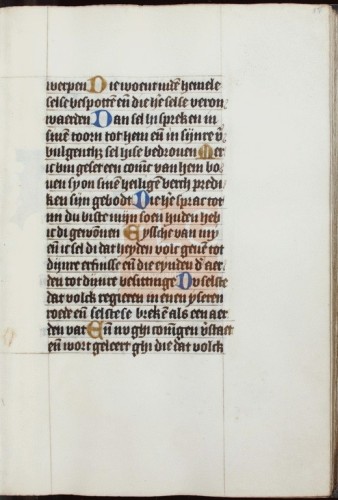 werpen Die woent inden hemele
selse bespotten en̄ die he selse veron
waerden Dan sel hi spreken in
sinen toorn tot hem en̄ in sijnre v̄
bulgentheit sel hise bedroeven Mer
ic bin geset een conīc van hem bo
ven syon sinē heiligē berch predi
ken sijn gebodt Die he sprac tot
mi du biste mijn soen huden heb
ic di gewonnen Eyssche van my
en̄ ic sel di dat heyden volc geuē tot
dijnre erfnisse en̄ die eynden d' aer
den tot dijnre besittinge Du selste
dat volck regieren in enen yseren
roede en̄ selste se brekē als een aer
den vat En̄ nv ghi coningen v̄staet
en̄ wort geleert ghi die dat volck